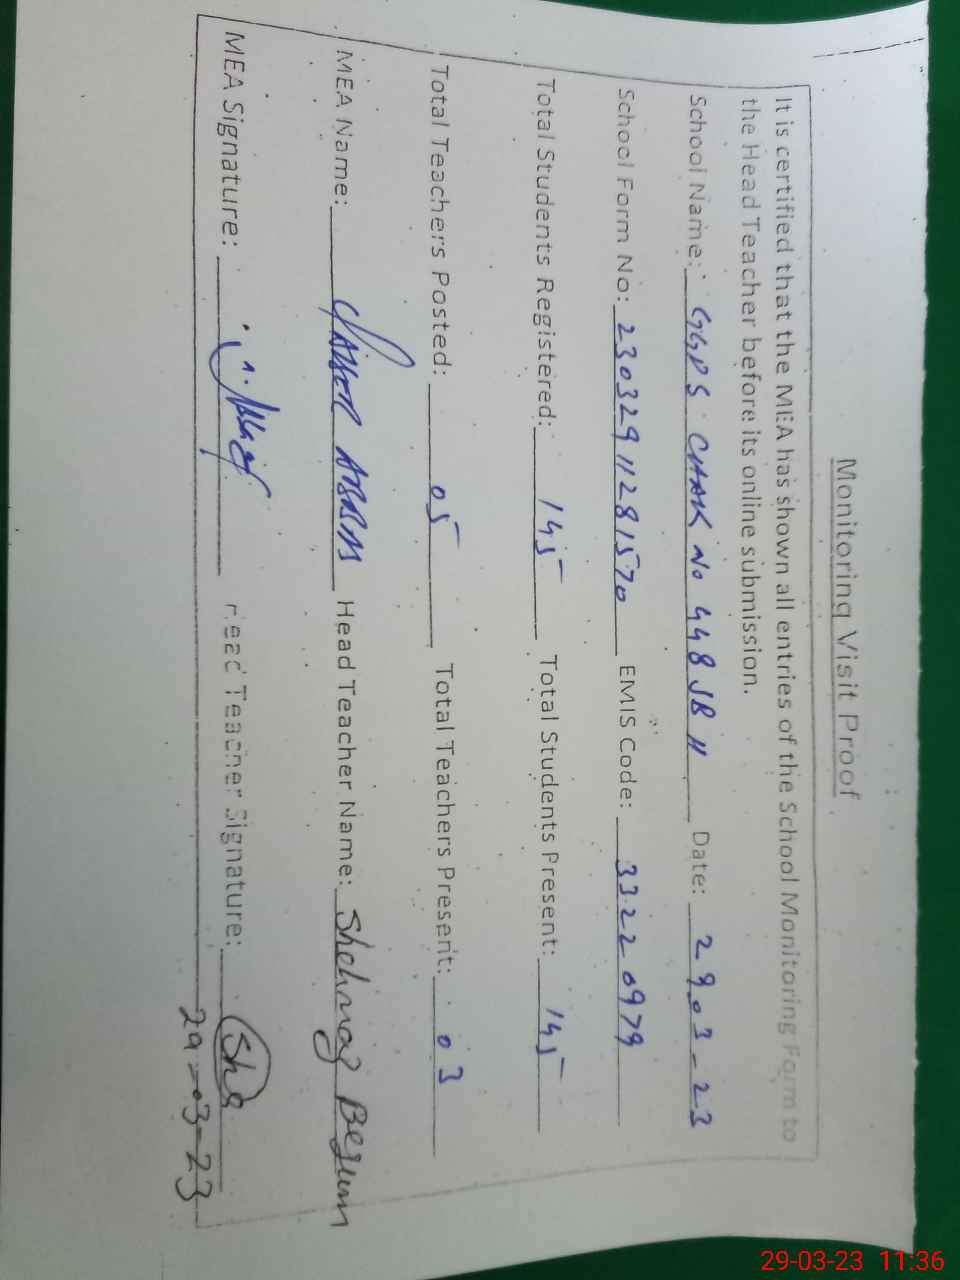 Monitoring Visit Proof
It is certified that the MEA has shown all entries of the School Monitoring Form to
the Head Teacher before its online submission.
School Name: GGPS CHAK No 448 JB II Date: 29.03-23
School Form No: 23032911281570 EMIS Code: 33220979
Total Students Registered: 145 Total Students Present: 145
Total Teachers Posted: 05 Total Teachers Present: 03
MEA Name: Head Teacher Name: Shehnaz Begum
MEA Signature: Head Teacher Signature: Sh
29-03-23
29-03-23 11:36